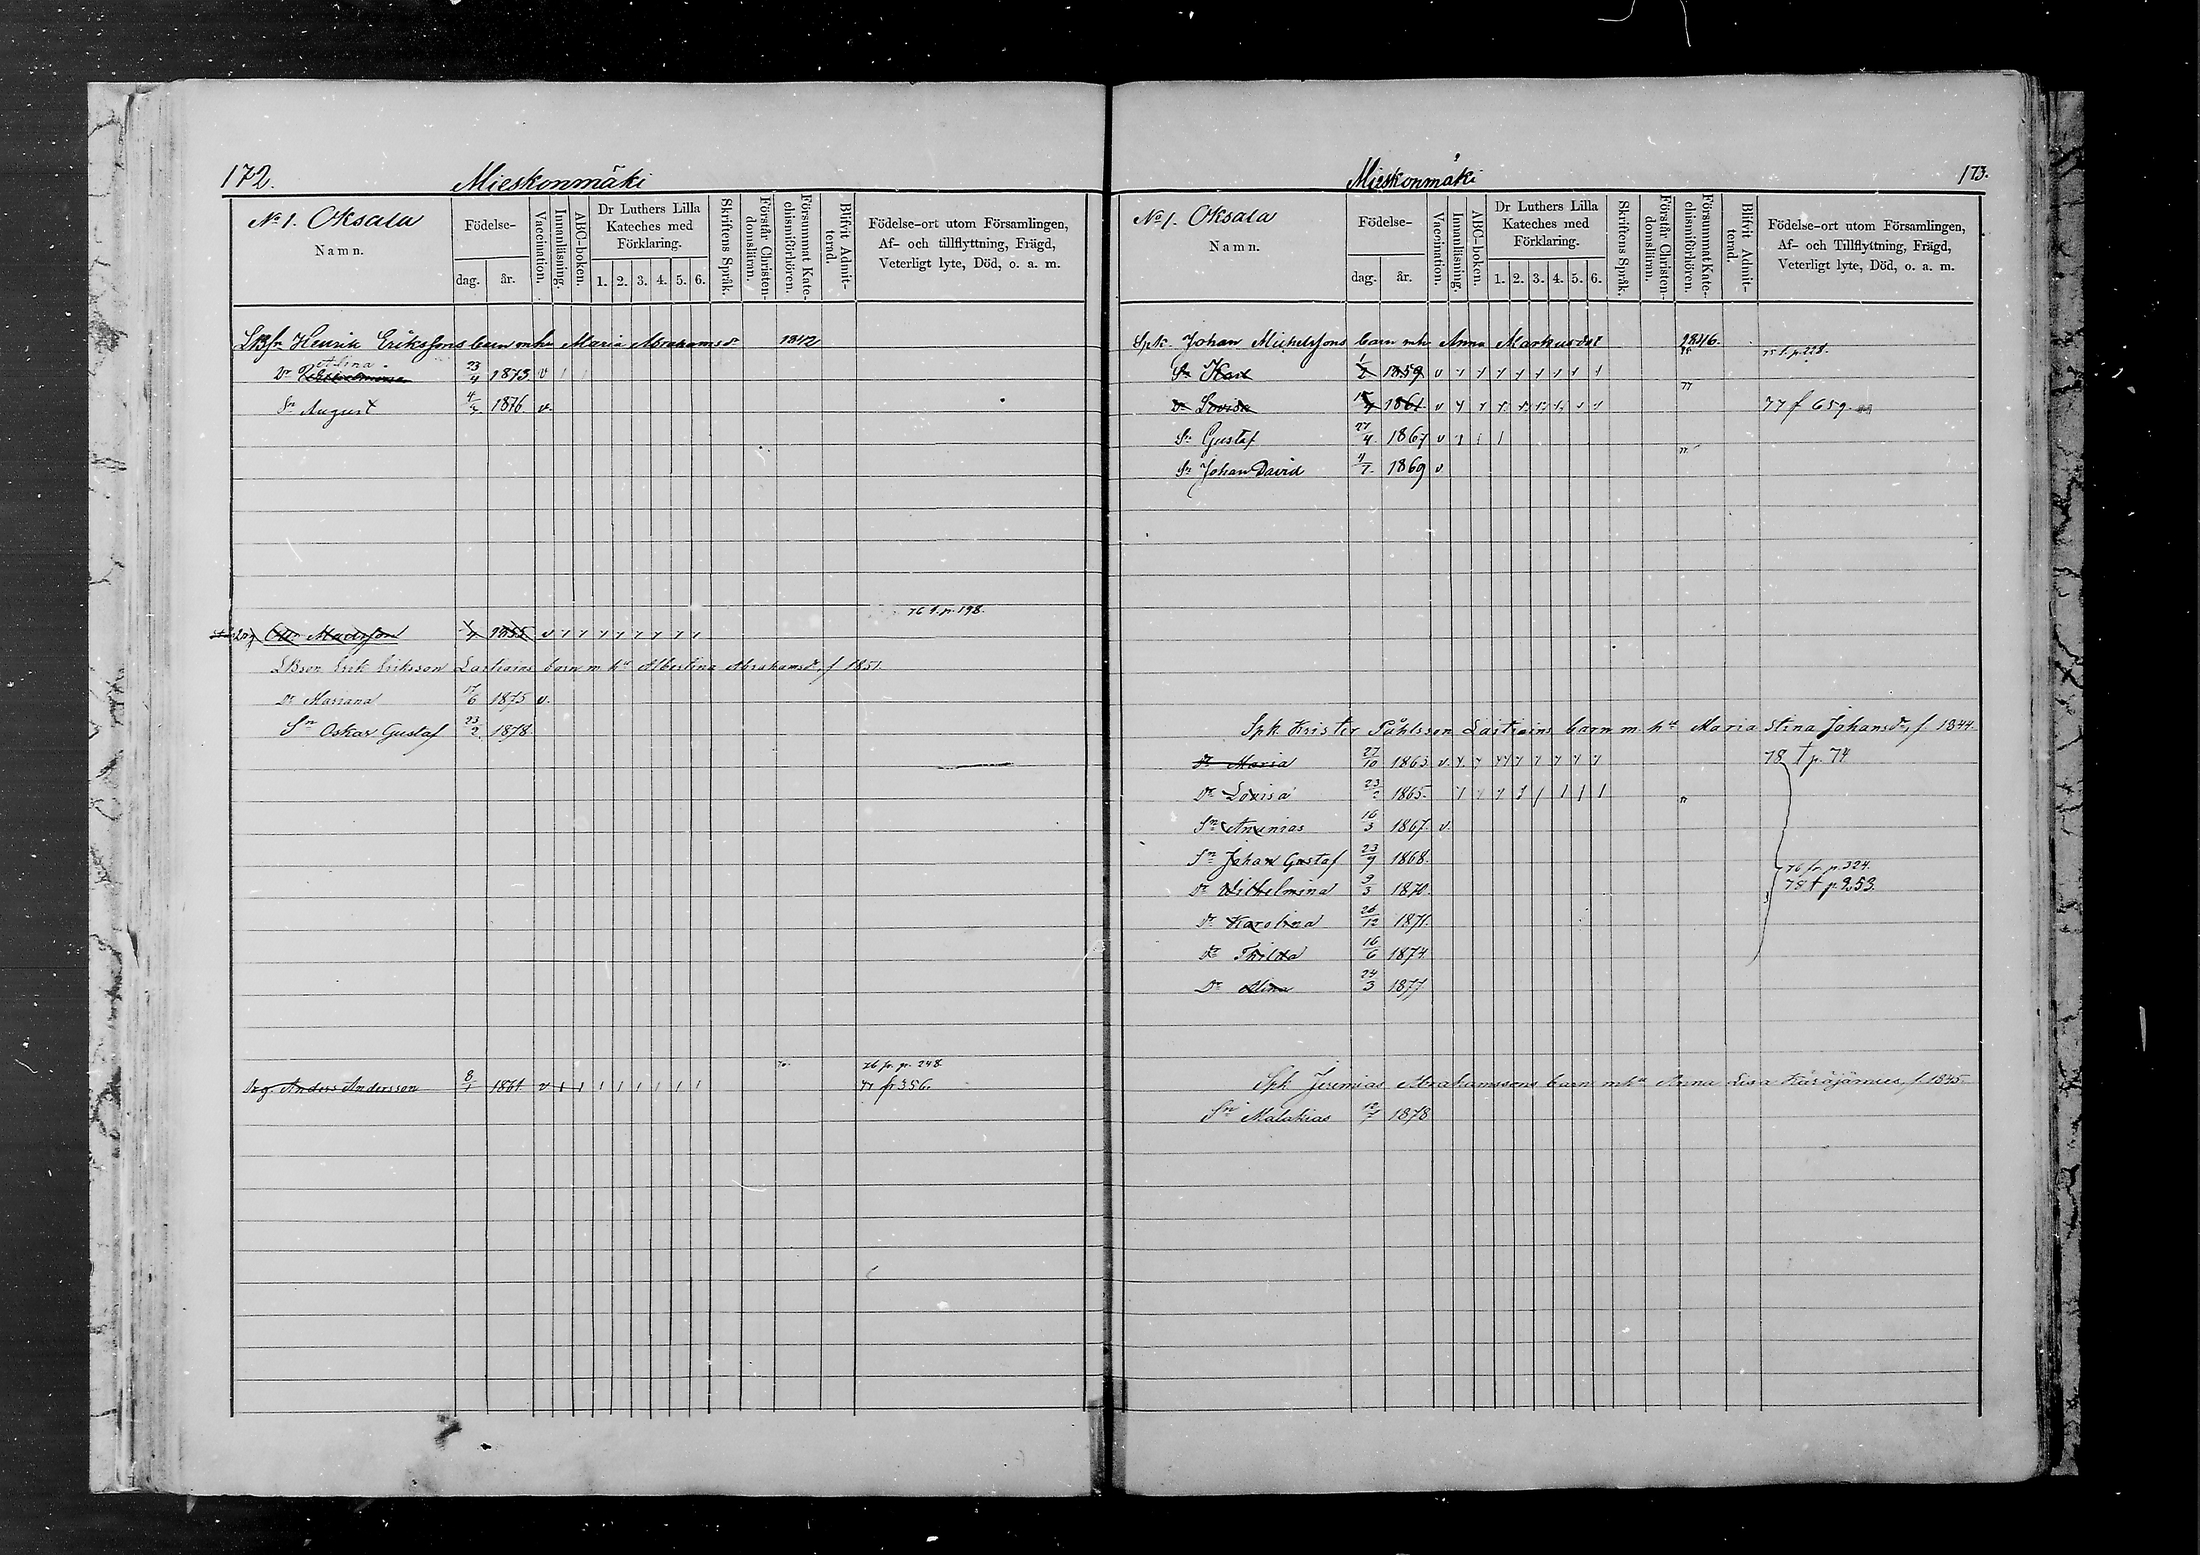 172.
Mieskonmäki
No 1. Oksala
Namn.
Födelse-
dag. år.
Vaccination.
Innanläsning.
ABC-boken.
Dr Luthers Lilla
Kateches med
Förklaring.
1. 2. 3. 4. 5. 6.
Skriftens Språk.
Förstår Christen-
domsläran.
Försummat Kate-
chismiförhören.
Blifvit Admit-
terad.
Födelse-ort utom Församlingen,
Af- och tillflyttning, Frägd,
Veterligt lyte, Död, o. a. m.
LBfr Henrik Erikssons barn m hu Maria Abrahamsdr 1842
Alina
Dr 23/4 1873 v 1
Sn August 4/2 1876 v.
Otto Madsson 1855 v
LBson Erik Eriksson barn m hu Albertina Abrahamsdr f 1851
Dr Mariana 17/6 1875 v.
Sn Oskar Gustaf 23/2 1878.
76 fr. pr. 248
Drg. Anders Andersson 8/1 1861 v 1 1 1 1 1 1 1 1 77 fr 356.
Mieskonmäki
173.
No 1. Oksala
Namn.
Födelse-
dag. år.
Vaccination.
Innanläsning.
ABC-boken.
Dr Luthers Lilla
Kateches med
Förklaring.
1. 2. 3. 4. 5. 6.
Skriftens Språk.
Förstår Christen-
domsläran.
Försummat Kate-
chismiförhören.
Blifvit Admit-
terad.
Födelse-ort utom Församlingen,
Af- och Tillflyttning, Frägd,
Veterligt lyte, Död, o. a. m.
Spk. Johan Michelssons barn m h Anna Markusdr 1846.
75 t. p. 228.
Sn Karl 1/2 1859 v
Dr Lovisa 1861 v 77 f 659.
Sn Gustaf 27/4 1867 v 1 1 1
Sn Johan David 1869 v
Spk Krister Påhlsson barn m. hu Maria Stina Johansdr, f 1844.
Dr Maria 27/10 1863 v. 78 t p. 74
Dr Lovisa 23/2 1865.
Sn Ananias 16/3 1867. v.
Sn Johan Gustaf 23/9 1868.
76 fr. p. 324.
Dr Wilhelmina 9/3 1870. 78 t p. 253.
Dr Karolina 26/12 1871.
Dr Thilda 16/6 1874
Dr Alina 24/3 1877
Spk Jeremias Abrahamssons barn m hu Anna Lisa f. 1845.
Sn Malakias 12/7 1878